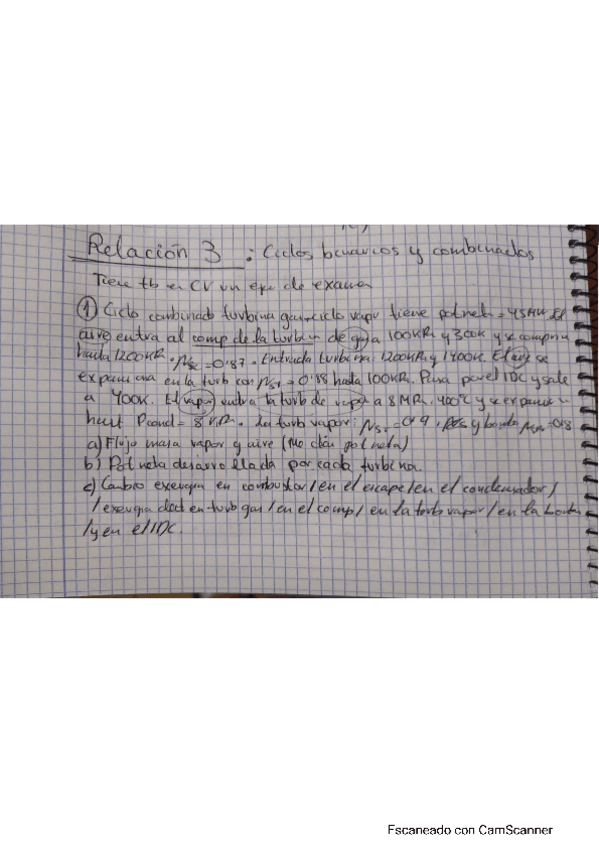 Relación 3 : Ciclos binarios y combinados
Tiene tb en CV un eje de examen
① Ciclo combinado turbina gas-ciclo vapor tiene pot neta = 45MW. El
aire entra al comp de la turbina de gas a 100KPa y 300K y se comprime
hasta 1200KPa. ηsc = 0'87. Entrada turbina: 1200KPa y 1400K. El aire se
expansiona en la turb con ηst = 0'88 hasta 100KPa. Pasa por el IDC y sale
a 400K. El vapor entra en la turb de vapor a 8MPa, 400ºC y se expansiona
hasta Pcond = 8KPa. La turb vapor: ηst = 0'9, y bomba = 0'8
a) Flujo masa vapor y aire (me dan pot neta)
b) Pot neta desarrollada por cada turbina.
c) Cambio exergía en combustor/en el escape/en el condensador/
/exergía dest en turb gas/en el comp/en la turb vapor/en la bomba
/y en el IDC.
Escaneado con CamScanner